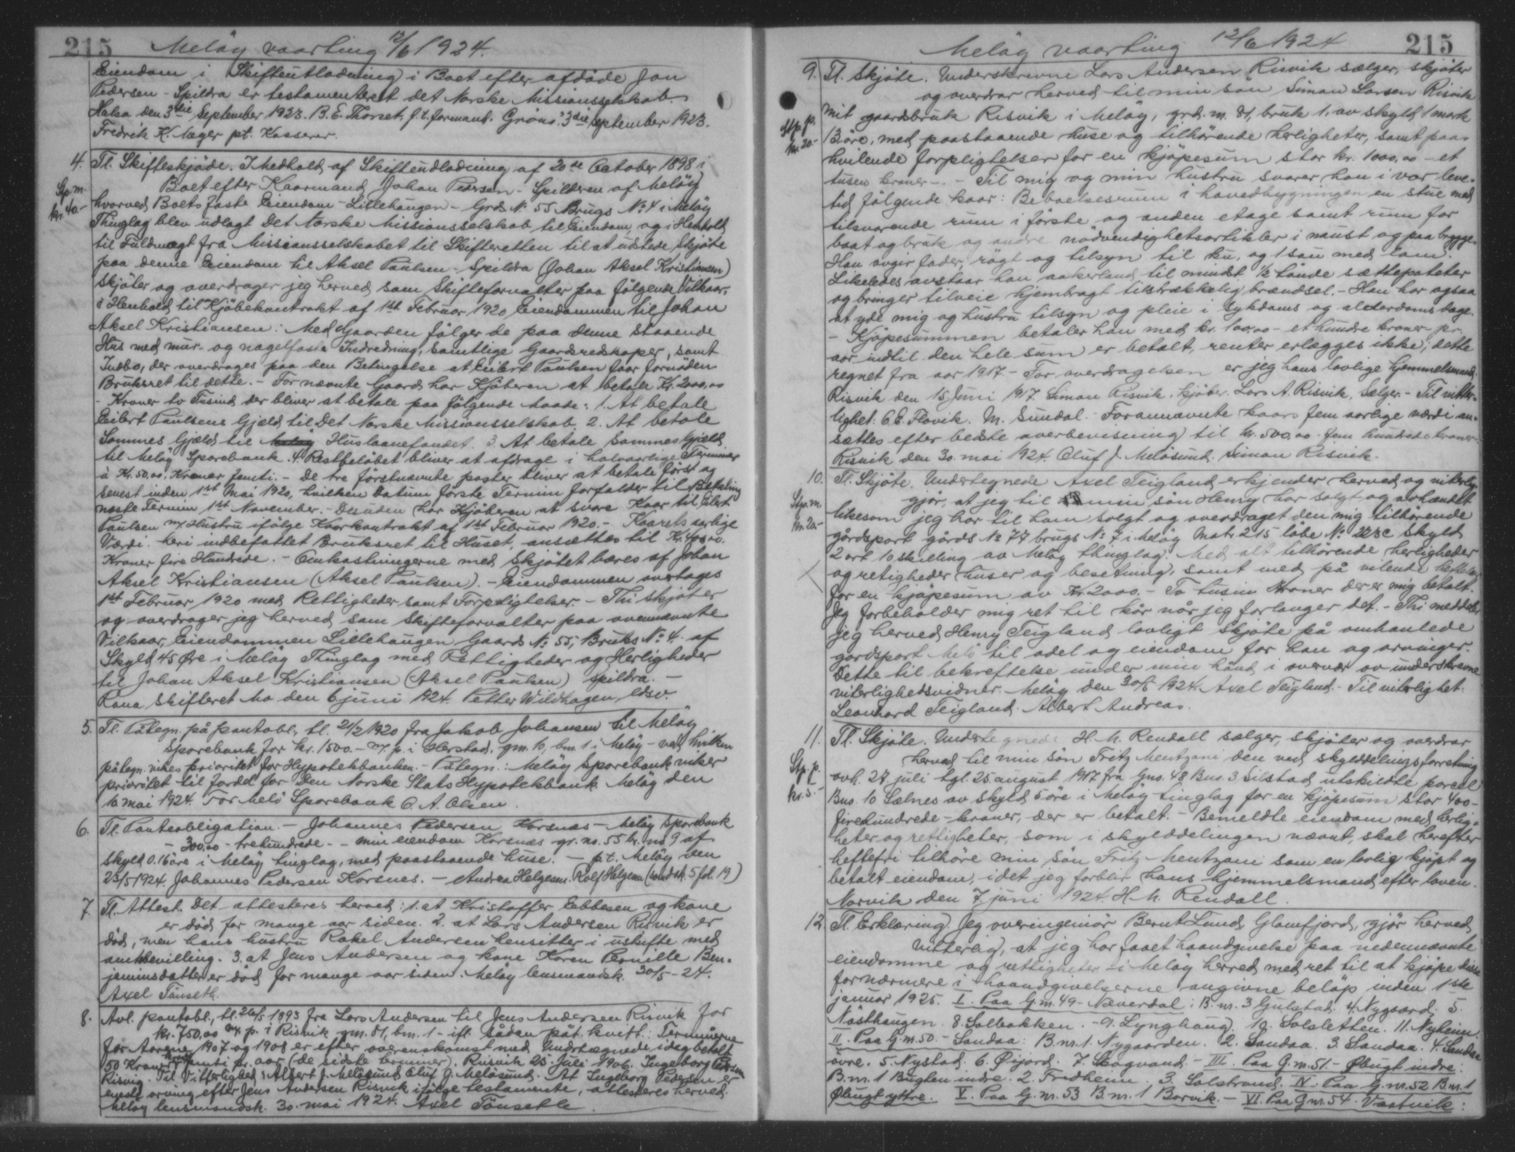 215 Meløy vaarting 12/6 1924.
Eiendom i Skifteutlodning i Boet efter afdøde Jon
Pedersen - Spildra er testamenteret det Norske Missionsselskab
Halsa den 3die September 1923. B. E. Thorset f. t. formand. Grøns 3die September 1923.
Fredrik K. pt. Kasserer.
4. Tl. Skifteskjøde. I hedhold af Skifteudlodning af 20de October 1898 i
Boet efter Kaarmand Johan Pedersen - Spilderen af Meløy
Stp. m. kr. 40.-
hvorved Boets faste Eiendom Lillehaugen - Grds No. 55 Brugs No. 4 i Meløy
Thinglag blev udlagt Det Norske Missionsselskab til Eiendom og i Henhold
til Fuldmagt fra Missionsselskabet til Skifteretten til at udstede Skjøte
paa denne Eiendom til Aksel Paulsen - Spildra (Johan Aksel Kristiansen)
skjøter og overdrager jeg herved som Skifteforvalter paa følgende Vilkaar,
i Henhold til Kjøbekontrakt af 1st Februar 1920 Eiendommen til Johan
Aksel Kristiansen: Med Gaarden følger de paa denne staaende
Hus med mur- og nagelfaste Indredning, samtlige Gaardsredskaper, samt
Indbo, der overdrages paa den Betingelse at Eibert Paulsen faar fornøden
Bruksret til dette. - For nævnte Gaard har Kjøberen at betale Kr. 2000,00
- Kroner to Tusind der bliver at betale paa følgende Maade: 1. At betale
Eibert Paulsens Gjæld til Det Norske Missionsselskab. 2. At betale
Sammes Gjæld til Huslaanefondet. 3. At betale sammes Gjæld
til Meløy Sparebank. 4 Restbeløbet bliver at afdrage i halvaarlige Terminer
à Kr. 50,00, Kroner femti. - De tre førstnævnte poster bliver at betale først og
senest inden 1st Mai 1920, hvilken Datum første Termin forfalder til Betaling
næste Termin 1st November. - Desuden har Kjøberen at svare Kaar til Eibert
Paulsen m/ Hustru ifølge Kaarkontrakt af 1st Februar 1920. - Kaarets aarlige
Værdi - heri indbefattet Bruksret til Huset, ansættes til Kr. 400,00.
Kroner fire Hundrede. - Omkostningerne med Skjøtet bæres af Johan
Aksel Kristiansen (Aksel Paulsen). - Eiendommen overtages
1st Februar 1920 med Rettigheder samt Forpligtelser. - Thi skjøter
og overdrager jeg herved som Skifteforvalter paa ovennævnte
Vilkaar Eiendommen Lillehaugen Gaards No. 55, Bruks No. 4 af
Skyld 45 Øre i Meløy Thinglag med Rettigheder og Herligheder
til Johan Aksel Kristiansen (Aksel Paulsen) Spildra. -
Rana skifteret Mo den 6 juni 1924. Petter Wildhagen edsv.
5. Tl. Påtegn. på pantobl. tl. 21/2 1920 fra Jakob Johansen til Meløy
Sparebank for kr. 1500.- m. p. i gm. 10, bm. 1 i Meløy - ved hvilken
påtegn. vikes prioritet for Hypotekbanken. - Påtegn: Meløy Sparebank viker
prioritet til fordel for Den Norske Stats Hypothekbank. Meløy den
16 mai 1924. For Melø Sparebank O. A. Olsen.
6. Tl. Panteobligation. - Johannes Pedersen Korsnæs - Meløy Sparebank
- 300,00 - trehundrede. - min eiendom Korsnæs gr. no. 55 br. no 9 af
skyld 0.16 øre i Meløy tinglag, med paastaaende huse. - p.t. Meløy den
23/5 1924. Johannes Pedersen Korsnes. - Andrea Helgesen. Rolf Helgesen (ved 5 fol. 19)
7. Tl. Attest. Det attesteres herved: 1. at Kristoffer Ebbesen og kone
er død for mange aar siden. 2. at Lars Andersen Risvik er
død, men hans hustru Rakel Andersen hensitter i uskifte med
amtsbevilling. 3. at Jens Andersen og kone Karen Pernille Ben-
jaminsdatter er død for mange aar siden. Meløy lensmandsk. 30/5-24.
Axel Tønseth.
8. Avl. pantobl. tl. 26/5 1893 fra Lars Andersen til Jens Andersen Risvik for
kr. 750,00 m. p. i Risvik gm. 81, bm. 1 - ifl. sålydende påt. kvitt.: Terminerne
for Aarene 1907 og 1908 er efter overenskomst med Undertegnede idag betalt
50 Kroner femti pr. aar (de sidste terminer). Risvik 26 Juli 1906. Ingeborg Pedersen
Risvig. Til Vitterlighed: Albert J. Meløsund. Oluf J. Meløsund. At Ingeborg Pedersen er
eneste arving efter Jens Andersen Risvik ifølge testamente, attesteres herved.
Meløy lensmandsk. 30. mai 1924. Axel Tønseth
Meløy vaarting 12/6 1924 215
9. Tl. Skjøte. Underskrevne Lars Andersen Risvik sælger, skjøter
og overdrar herved til min søn Simon Larsen Risvik
Stp. p. kr. 20-
mit gaardsbruk Risvik i Meløy, grd. m. 81, bruk 1, av skyld 1 mark
13 øre, med paastaaende huse og tilhørende herligheter, samt paa-
hvilende forpligtelser for en kjøpesum stor kr. 1000,00 - et
tusen kroner -. - Til mig og min hustru svarer han i vor leve-
tid følgende kaar: Beboelsesrum i hovedbygningen en stue med
tilsvarende rum i første og anden etage samt rum for
baat og bruk og andre nødvendighetsartikler i naust og paa brygge.
Han avgir foder, røgt og tilsyn til ku, og 1 sau med lam.
Likeledes avstaar han aakerland til mindst 1/2 tønde sættepoteter
og bringer tilveie hjembragt tilstrækkelig brændsel. - Han har ogsaa
at yde mig og hustru tilsyn og pleie i sykdoms og alderdoms dage.
- Kjøpesummen betaler han med kr. 100,00 - et hundre kroner pr.
aar indtil den hele sum er betalt renter erlægges ikke; dette
regnet fra aar 1917 - For overdragelsen er jeg hans lovlige hjemmelsmand.
Risvik den 15 Juni 1917 Simon Risvik, Kjøber. Lars A. Risvik, Sælger. - Til vitter-
lighet: C. E. Flovik. M. Sundal. Foranmævnte kaars fem aarlige værdi an-
sættes efter bedste overbevisning til kr. 500,00 - fem hundrede kroner -
Risvik den 30. mai 1924. Oluf J. Meløsund. Simon Risvik.
10. Tl. Skjøte. Undertegnede Axel Teigland erkjender herved og vitterlig-
gjør, at jeg til min søn Henry har solgt og avhændet
Stp. m. kr. 20-
likesom jeg har til ham solgt og overdraget den mig tilhørende
gårdsport gårds No 77 brugs No 7 i Meløy Matr. 215 løbe No. 223c skyld
2 ort 10 skilling av Meløy Thinglag. Med alt tilhørende herligheder
og retigheder huser og besetning, samt med på vilende heftelser
for en kjøpesum av Kr 2000. - To tusin Kroner der er mig betalt.
Jeg forbeholder mig ret til kår når jeg forlanger det. - Thi meddeler
jeg herved Henry Teigland lovligt Skjøte på omhandlede
gårdsport til odel og eiendom for han og arvinger.
Dette til bekreftelse under min hånd i overvær av underskrevne
vitterlighedsvidner. Meløy den 30/5 1924. Axel Teigland. Til vitterlighet:
Leonhard Teigland. Albert Andreas.
11. Tl. Skjøte. Undertegnede H. M. Rendall sælger, skjøter og overdrar
herved til min søn Fritz Mentzoni den ved skylddelingsforretning
Stp. p. kr. 5.-
avh. 27 juli tgl. 25 august 1917 fra Gno. 48 Bno. 3 Selstad utskildte parcel
Bno. 10 Sølnes av skyld 5 øre i Meløy tinglag for en kjøpesum stor 400 -
firehundrede - kroner, der er betalt. - Bemeldte eiendom med herlig-
heter og rettigheter, som i skylddelingen nævnt, skal herefter
heftefri tilhøre min søn Fritz Mentzoni som en lovlig kjøpt og
betalt eiendom, idet jeg forblir hans hjemmelsmand efter loven.
den 7 juni 1924. H. M. Rendall.
12. Tl. Erklæring. Jeg overingeniør Bernt Lund, Glomfjord, gjør herved
vitterlig, at jeg har faaet haandgivelse paa nedennævnte
eiendomme og rettigheter i Meløy herred med ret til at kjøpe disse
for nærmere i haandgivelserne angivne beløp inden 1ste
januar 1925. I. Paa G.nr. 49 - Neverdal: B.nr. 3 4. Nygaard. 5.
Nøsthaugen. 8. Solbakken. - 9. Lynghaug. 10. Soløletten. 11. Nyheim.
II. Paa G.nr. 50 - Sandaa: B.nr. 1 Nygaarden. 2. Sandaa. 3 Sandaa. 4. Sandaa
øvre. 5. Nystad. 6. Øijord. 7. Skogvand. - III. Paa G.nr. 51 - Øbugt indre:
B.nr. 1 Buglen indre. 2. Fredheim. 3. Solstrand. IV. Paa G.nr. 52 B.nr. 1
Øbugt yttre. V. Paa G.nr. 53 B.nr. 1 Borvik. - VI. Paa G.nr. 54. Vastvik: